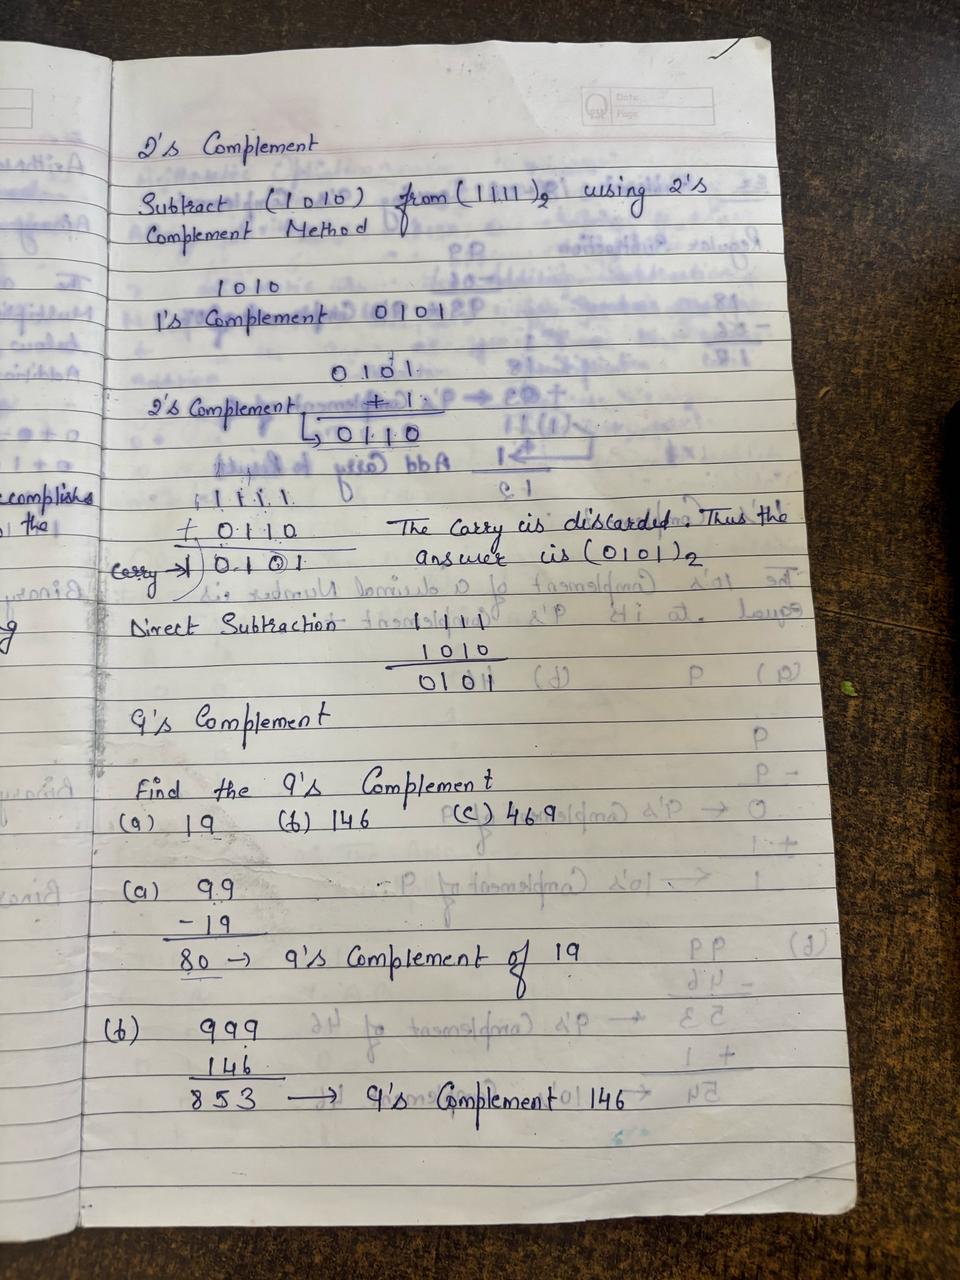 Date
Page
2's Complement
Subtract (1010) from (1111)2 using 2's
Complement Method
1010
1's Complement 0101
1
0101
2's Complement + 1
0110
1111
+ 0110 The carry is discarded. Thus the
carry → 1 0101 answer is (0101)2
Direct Subtraction 1111
1010
0101
9's Complement
Find the 9's Complement
(a) 19 (b) 146 (c) 469
(a) 99
- 19
80 → 9's Complement of 19
(b) 999
146
853 → 9's Complement 146
complishs
the
g